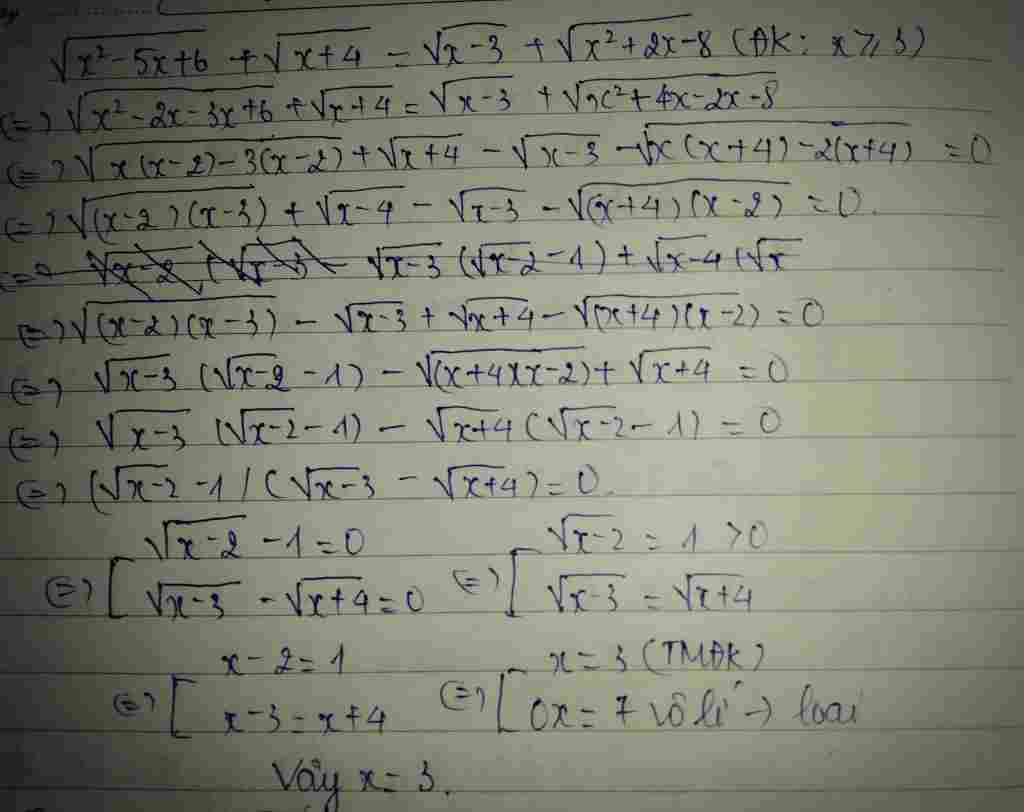 √(x²-5x+6) + √(x+4) = √(x-3) + √(x²+2x-8) (ĐK: x ⩾ 3)
(=) √(x²-2x-3x+6) + √(x+4) = √(x-3) + √(x²+4x-2x-8)
(=) √(x(x-2)-3(x-2)) + √(x+4) - √(x-3) - √(x(x+4)-2(x+4)) = 0
(=) √((x-2)(x-3)) + √(x-4) - √(x-3) - √((x+4)(x-2)) = 0.
√(x-3) (√(x-2) -1) + √(x-4) (√x
(=) √((x-2)(x-3)) - √(x-3) + √(x+4) - √((x+4)(x-2)) = 0
(=) √(x-3) (√(x-2) -1) - √((x+4)(x-2)) + √(x+4) = 0
(=) √(x-3) (√(x-2) -1) - √(x+4) (√(x-2) -1) = 0
(=) (√(x-2) -1) (√(x-3) - √(x+4)) = 0.
(=) [ √(x-2) -1 = 0
√(x-3) - √(x+4) = 0
(=) [ √(x-2) = 1 > 0
√(x-3) = √(x+4)
(=) [ x-2 = 1
x-3 = x+4
(=) [ x = 3 (TMĐK)
0x = 7 vô lí → loại
Vậy x = 3.